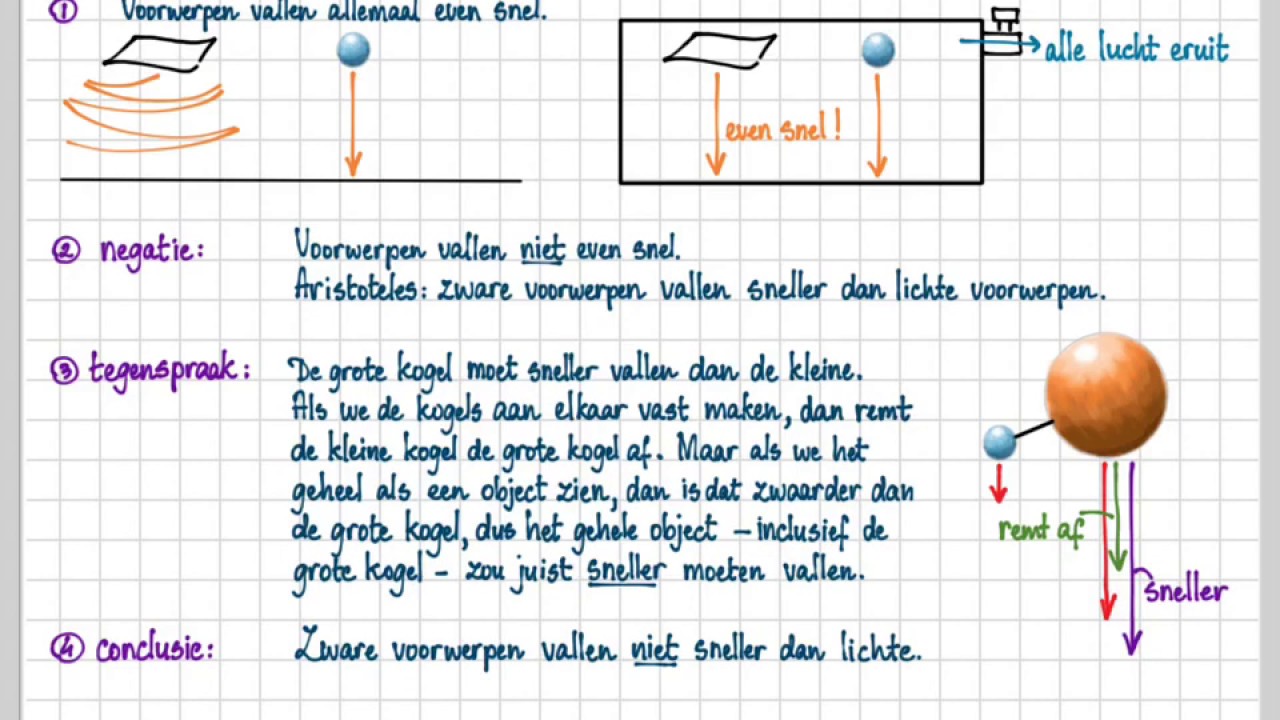 ① Voorwerpen vallen allemaal even snel.
alle lucht eruit
even snel!
② negatie: Voorwerpen vallen niet even snel.
Aristoteles: zware voorwerpen vallen sneller dan lichte voorwerpen.
③ tegenspraak: De grote kogel moet sneller vallen dan de kleine.
Als we de kogels aan elkaar vast maken, dan remt
de kleine kogel de grote kogel af. Maar als we het
geheel als een object zien, dan is dat zwaarder dan
de grote kogel, dus het gehele object – inclusief de
grote kogel – zou juist sneller moeten vallen.
remt af
sneller
④ conclusie: Zware voorwerpen vallen niet sneller dan lichte.